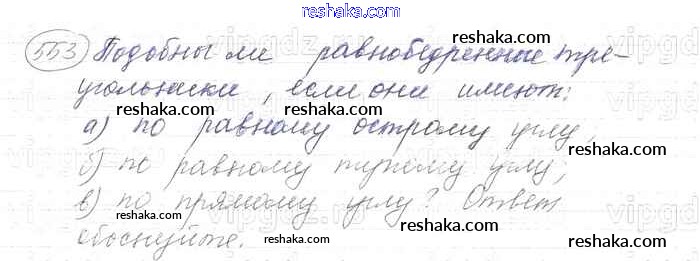 reshaka.com
553 Подобны ли равнобедренные тре-
reshaka.com
угольники, если они имеют:
reshaka.com
а) по равному острому углу,
reshaka.com
б) по равному тупому углу;
reshaka.com
в) по прямому углу? Ответ
reshaka.com reshaka.com
обоснуйте.
reshaka.com